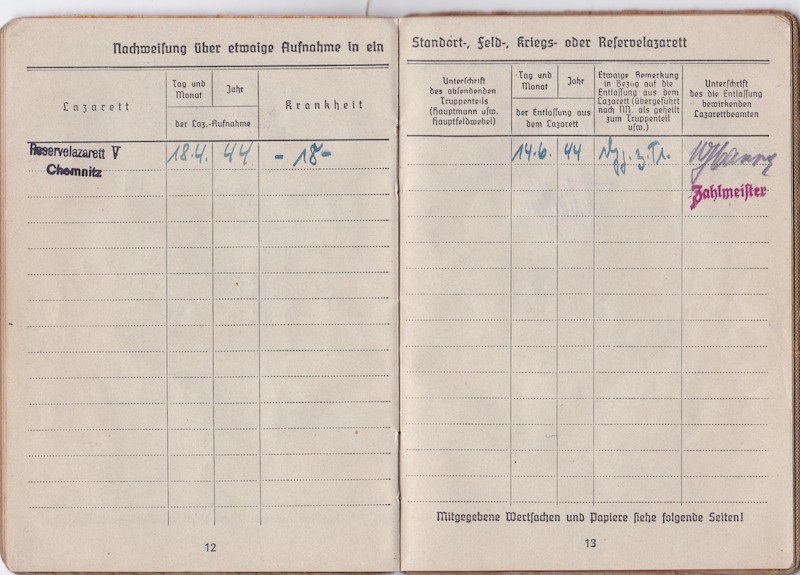 Nachweisung über etwaige Aufnahme in ein
Lazarett
Tag und
Monat
Jahr
der Laz.-Aufnahme
Krankheit
Reservelazarett V
Chemnitz
18.4.
44
- 18 -
12
Standort-, Feld-, Kriegs- oder Reservelazarett
Unterschrift
des absendenden
Truppenteils
(Hauptmann usw.
Hauptfeldwebel)
Tag und
Monat
Jahr
der Entlassung aus
dem Lazarett
Etwaige Bemerkung
in Bezug auf die
Entlassung aus dem
Lazarett (übergeführt
nach NN. als geheilt
zum Truppenteil
usw.)
Unterschrift
des die Entlassung
bewirkenden
Lazarettbeamten
14.6.
44
z. Tr.
Zahlmeister
Mitgegebene Wertsachen und Papiere siehe folgende Seiten!
13